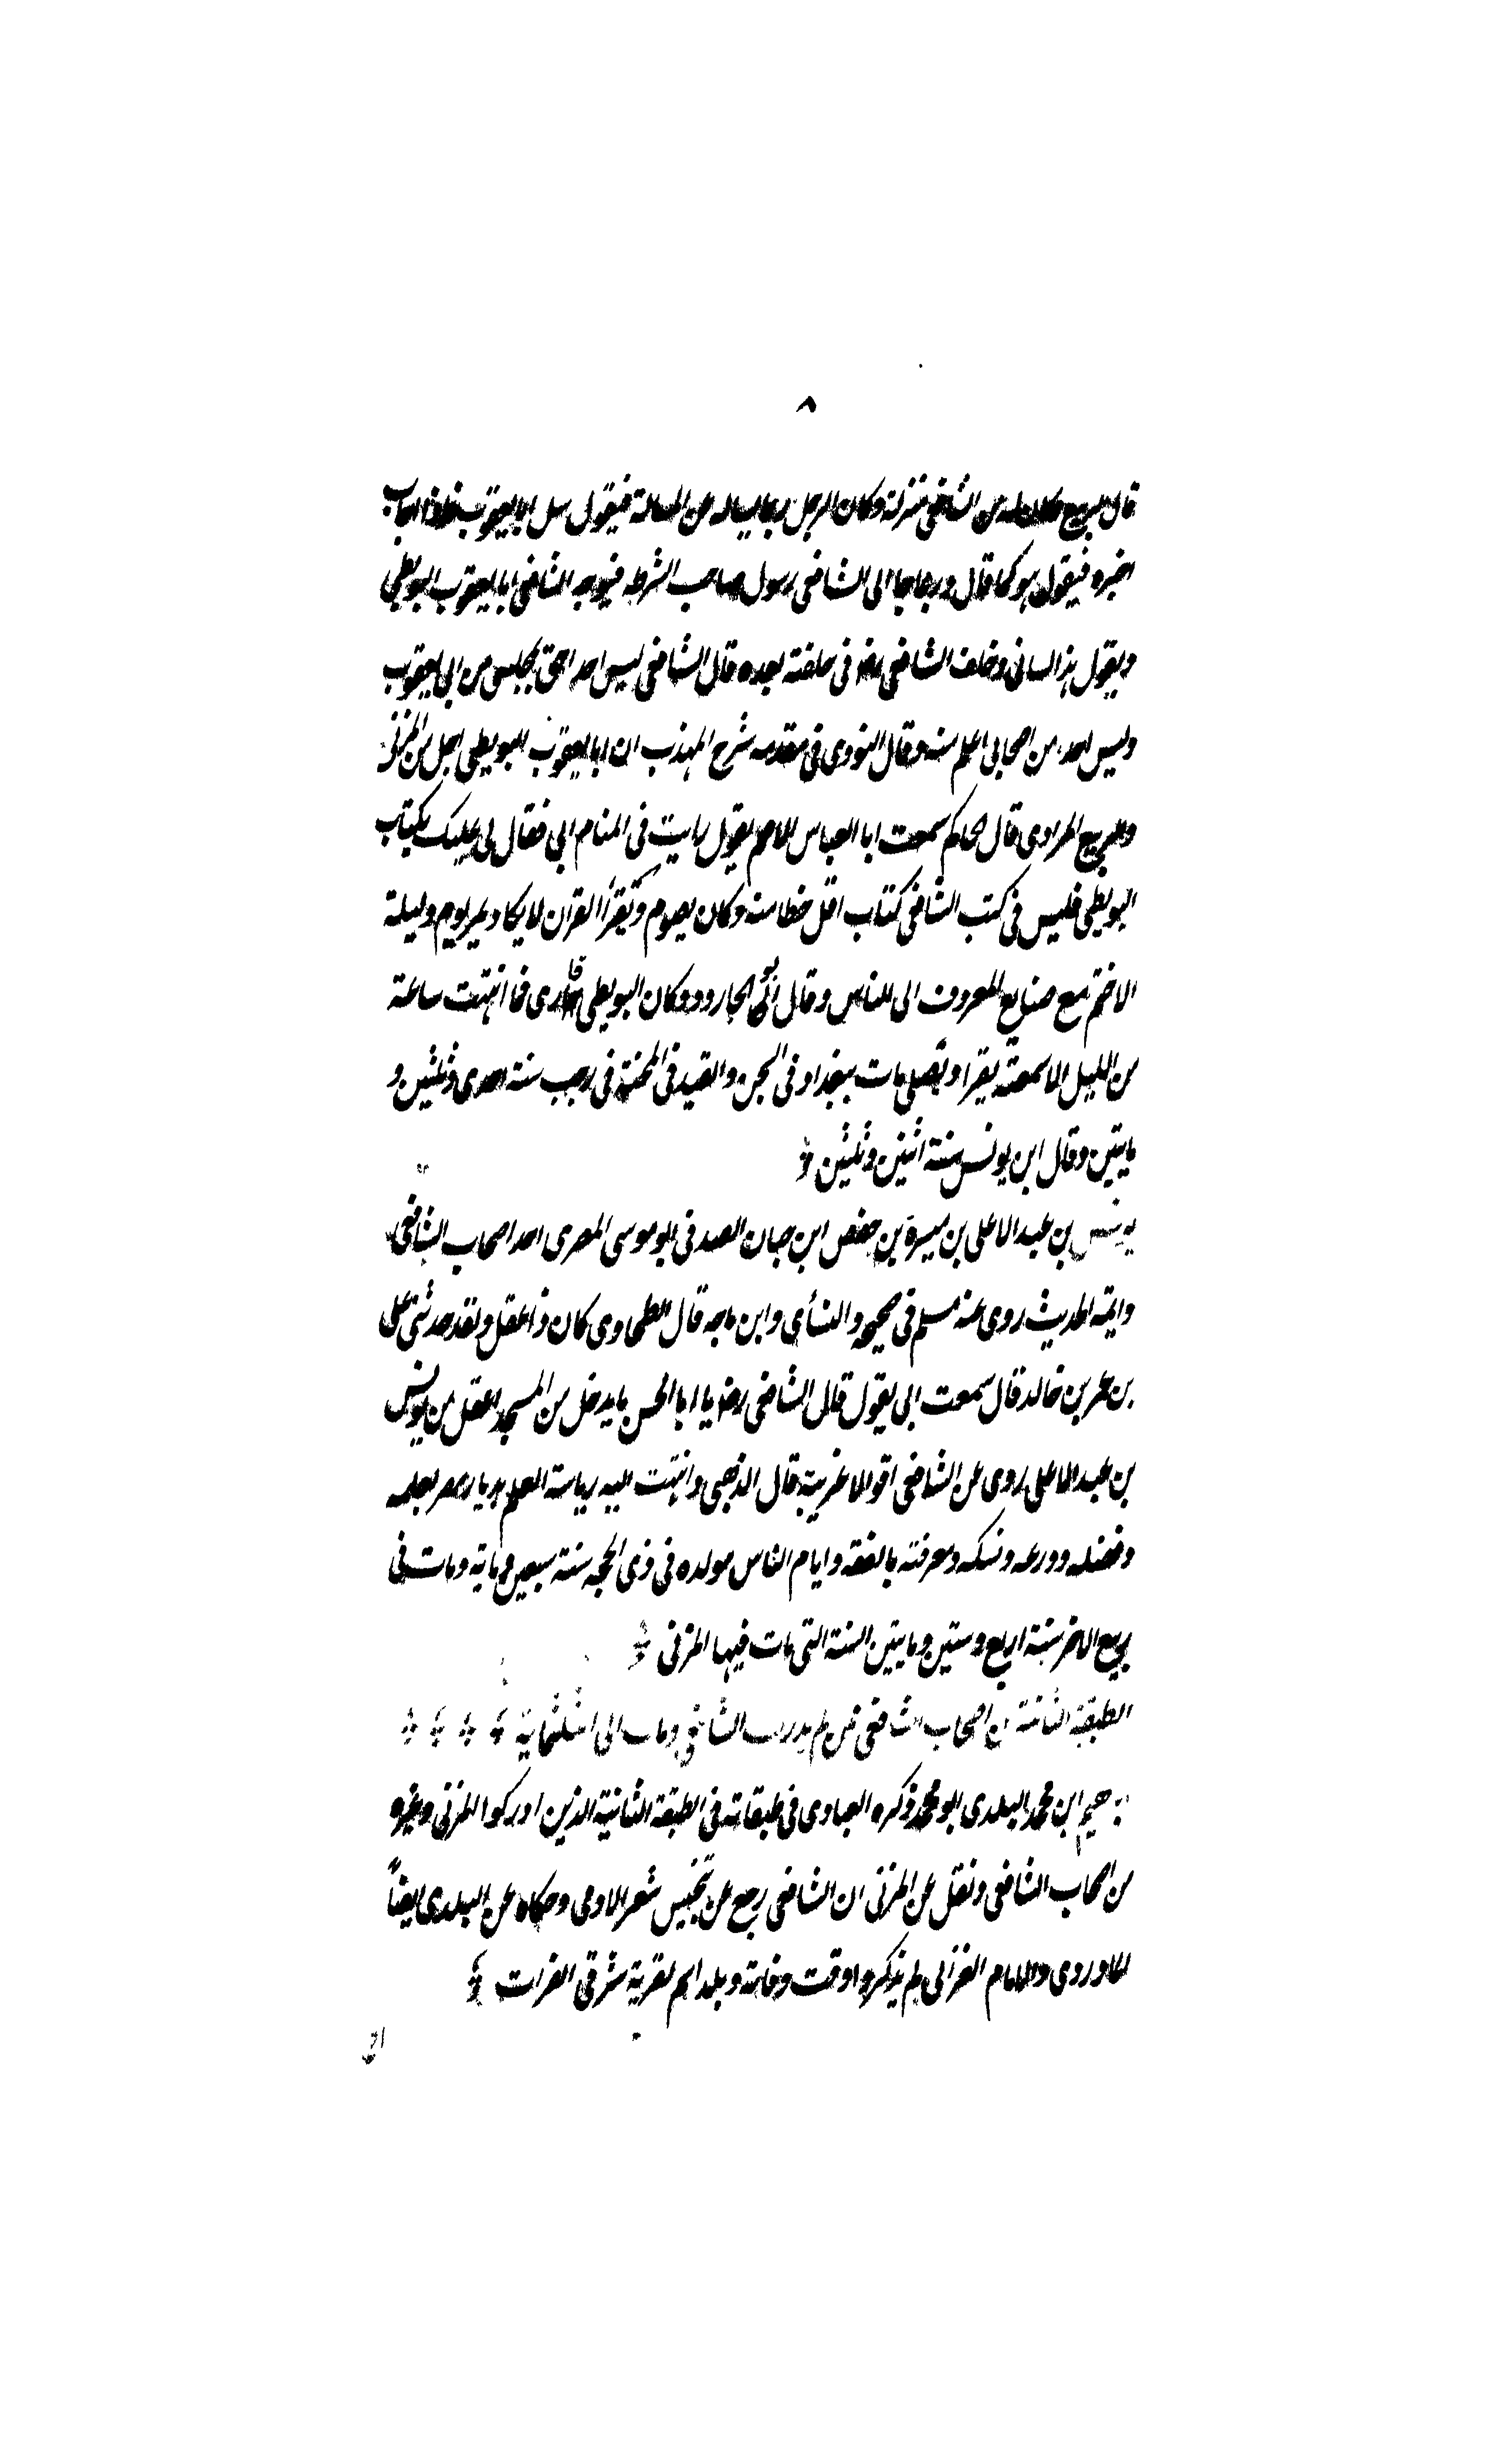 ٨
قال الربيع وكان له من الشافعي منزلة وكان الرجل ربما يساله عن المسالة فيقول سل ابا يعقوب فاذا اجاب
اخبره فيقول هو كما قال وربما جا الى الشافعي رسول صاحب الشرطه فيوجه الشافعي ابا يعقوب البويطي
ويقول هذا لساني وخلف الشافعي في حلقته بعده قال الشافعي ليس احد احق بمجلسي من ابي يعقوب
وليس احد من اصحابي اعلم منه وقال النووي في مقدمه شرح المهذب ان ابا يعقوب البويطي اجل من المزني
والربيع المرادي قال الحاكم سمعت ابا العباس الاصم يقول رايت في المنام ابي فقال لي عليك بكتاب
البويطي فليس في كتب الشافعي كتاب اقل خطا منه وكان يصوم ويقرأ القران لا يكاد يمر يوم وليلة
الا ختم مع صنايع المعروف الى الناس وقال ابو الجارود وكان البويطي جاري فما انتبهت ساعة
من الليل الا سمعته يقرا ويصلي مات ببغداد في السجن والقيد في المحنة في رجب سنة احدى وثلثين و
مايتين وقال ابن يونس سنة اثنين وثلثين
يونس بن عبد الاعلى بن ميسرة بن حفص ابن حبان الصدفي ابو موسى المصري احد اصحاب الشافعي
وايمة الحديث روى عنه مسلم في صحيحه والنسأي وابن ماجه قال الطحاوي كان ذا عقل ولقد حدثني علي
بن عمر بن خالد قال سمعت ابي يقول قال الشافعي رضه يا ابا الحسن ما يدخل من المسجد اعقل من يونس
بن عبد الاعلى روى عن الشافعي اقوالا غريبة قال الذهبي وانتهت اليه رياسة العلم بديار مصر بعلمه
وفضله وورعه ونسكه ومعرفته بالفقه وايام الناس مولده في ذي الحجه سنة سبعين وماية ومات في
ربيع الاخر سنة اربع وستين ومايتين السنة التي مات فيها المزني
الطبقة الثانية من اصحاب الشافعي ممن لم يدرك الشافعي ومات الى الثلثماية
ابن محمد البلدي ابو محمد ذكره العبادي في طبقاته في الطبقة الثانية الذين ادركوا المزني وغيره
من اصحاب الشافعي ونقل عن المزني ان الشافعي رجع عن تنجيس شعر الادمي وحكاه عن البلدي ايضاً
الماوردي والامام الغزالي لم يذكروا وقت وفاته وبلد اسم لقرية شرقي الفرات